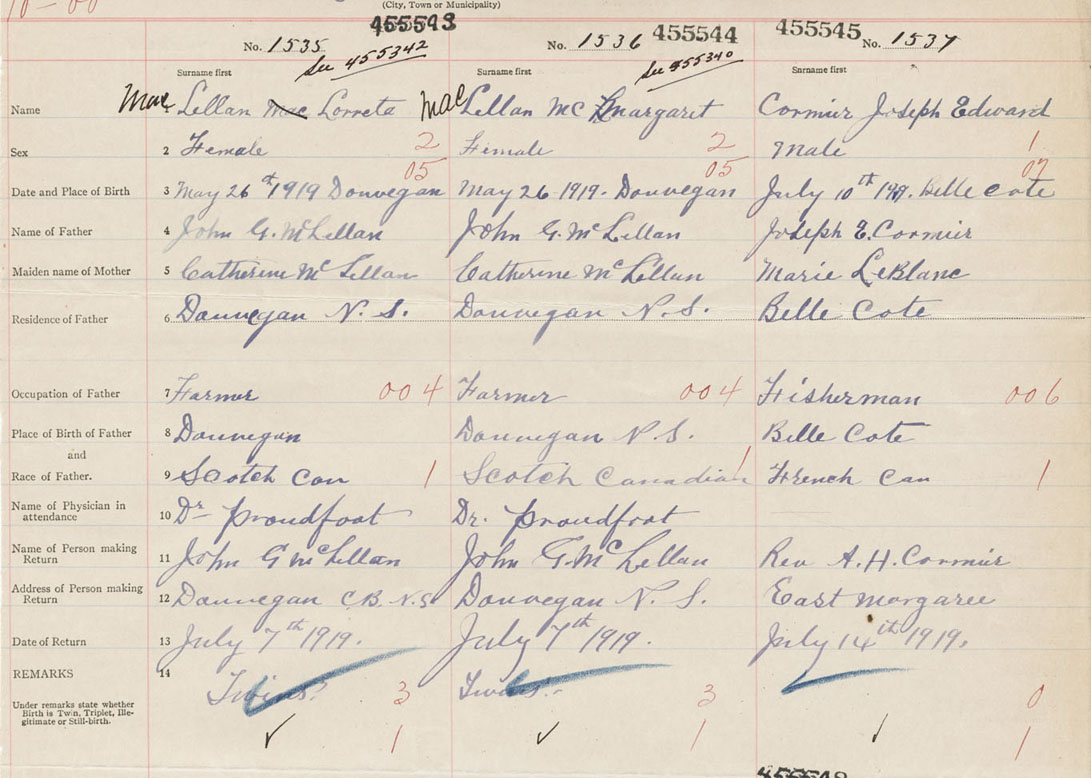 10-00
(City, Town or Municipality)
455593 455544 455545
No. 1535 No. 1536 No. 1537
See 455342 See 455340
Surname first Surname first Surname first
Name 1 Mac Lellan Mac Lorreta Mac Lellan Mc Margaret Cormier Joseph Edward
Sex 2 Female 2 Female 2 Male 1
05 05 07
Date and Place of Birth 3 May 26th 1919 Dounvegan May 26-1919. Dounvegan July 10th 1919. Belle Cote
Name of Father 4 John G. McLellan John G. McLellan Joseph E. Cormier
Maiden name of Mother 5 Catherine McLellan Catherine McLellan Marie LeBlanc
Residence of Father 6 Dounvegan N. S. Dounvegan N. S. Belle Cote
Occupation of Father 7 Farmer 004 Farmer 004 Fisherman 006
Place of Birth of Father 8 Dounvegan Dounvegan N. S. Belle Cote
and
Race of Father. 9 Scotch Can 1 Scotch Canadian 1 French Can 1
Name of Physician in
attendance 10 Dr Proudfoot Dr. Proudfoot
Name of Person making
Return 11 John G McLellan John G. McLellan Rev A. H. Cormier
Address of Person making
Return 12 Dounvegan C.B. N.S Dounvegan N. S. East Margaree
Date of Return 13 July 7th 1919. July 7th 1919. July 14th 1919.
REMARKS 14 Twins. 3 Twins. 3 0
Under remarks state whether
Birth is Twin, Triplet, Ille-
gitimate or Still-birth. 1 1 1